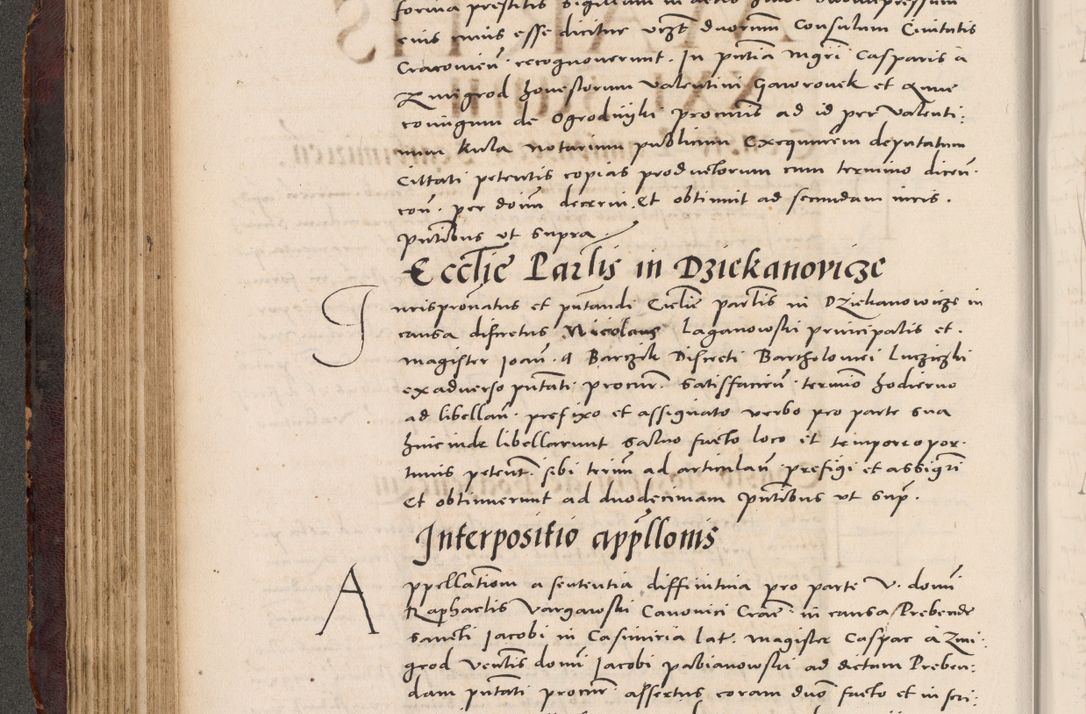 forma prestitis sigillum in
eius cuius esse dicitur vrzt duorum Consulum Ciuitatis
Cracouien̄. recognouerunt. In pn̄tia mgri Casparis à
Zmigrod honestorum Valentini Gaworovek et Anne
coniugum de Ogrodniki procuris ad id per Valenti:
num Kula notarium publicum Exequutem deputatum
Cittati petentis copias productorum cum termino dicen̄.
con̄. per doīm decerni. Et obtinuit ad secundam iuris.
pn̄tibus ut supra.
Ecclīe Parlīs in Dziekanovicze
Jurispronatus et pn̄tandi Ecclīe parlīs in Dziekanowicze in
causa discretus Nicolaus Laganowski principalis et.
magister Joan̄. à Barczik Discreti Bartholomei Lucziczki
ex aduerso pn̄tati procur̄. Satisfacien̄. termīo hodierno
ad libellan̄. prefixo et assignato verbo pro parte sua
hincinde libellarunt saluo facto loco et tempore opor.
tunis petent. sibi terīm ad articulan̄. prefigi et assigrī
Et obtinuerunt ad duodecimam pn̄tibus ut sup̄.
Interpositio appllonis
Appellationem a sententia diffinitiua pro parte V. domī
Raphaelis Vargawski Canonici Crac̄. in causa Prebende
sancti Jacobi in Casimiria lat̄. magister Caspar à Zmi:
grod ventis domī Jacobi pabianowski ad dictam Preben:
dam pn̄tati procur̄ assertus coram duō facto et in scri: